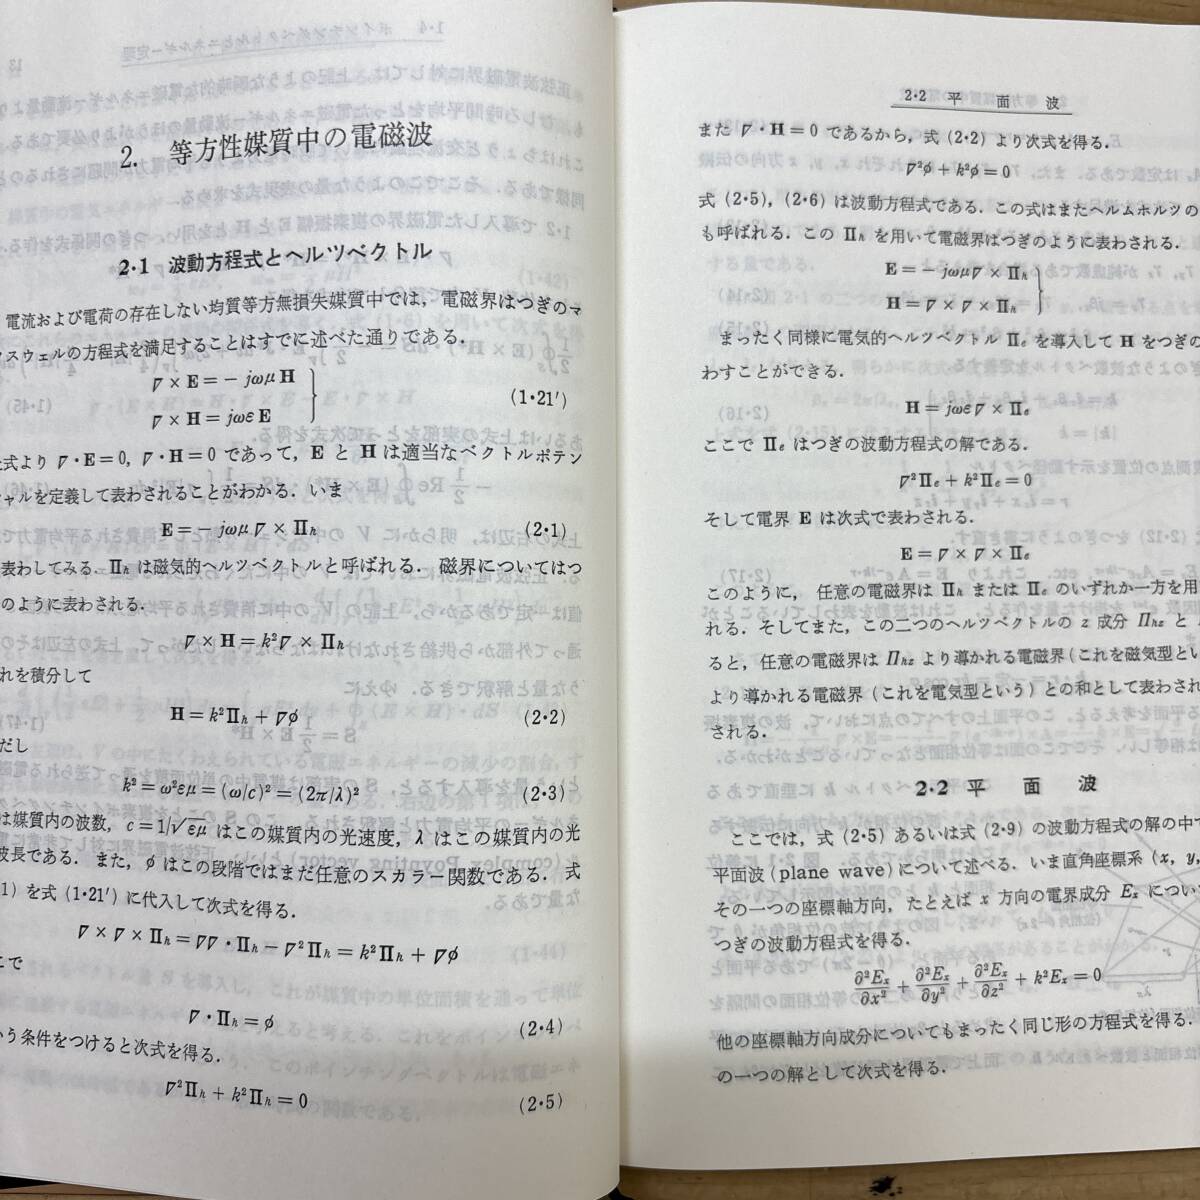 2. 等方性媒質中の電磁波
2・1 波動方程式とヘルツベクトル
電流および電荷の存在しない均質等方無損失媒質中では，電磁界はつぎのマ
クスウェルの方程式を満足することはすでに述べた通りである．
∇×E=−jωμH
∇×H=jωεE
(1・21′)
式より ∇・E=0, ∇・H=0 であって，E と H は適当なベクトルポテン
シャルを定義して表わされることがわかる．いま
E=−jωμ∇×Π_h (2・1)
表わしてみる．Π_h は磁気的ヘルツベクトルと呼ばれる．磁界についてはつ
のように表わされる．
∇×H=k²∇×Π_h
れを積分して
H=k²Π_h+∇φ (2・2)
だし
k²=ω²εμ=(ω/c)²=(2π/λ)² (2・3)
は媒質内の波数，c=1/√εμ はこの媒質内の光速度，λ はこの媒質内の光
波長である．また，φ はこの段階ではまだ任意のスカラー関数である．式
1) を式 (1・21′) に代入して次式を得る．
∇×∇×Π_h=∇∇・Π_h−∇²Π_h=k²Π_h+∇φ
こで
∇・Π_h=φ (2・4)
いう条件をつけると次式を得る．
∇²Π_h+k²Π_h=0 (2・5)
2・2 平面波
また ∇・H=0 であるから，式 (2・2) より次式を得る．
∇²φ+k²φ=0
式 (2・5), (2・6) は波動方程式である．この式はまたヘルムホルツの
も呼ばれる．この Π_h を用いて電磁界はつぎのように表わされる．
E=−jωμ∇×Π_h
H=∇×∇×Π_h
まったく同様に電気的ヘルツベクトル Π_e を導入して H をつぎの
わすことができる．
H=jωε∇×Π_e
ここで Π_e はつぎの波動方程式の解である．
∇²Π_e+k²Π_e=0
そして電界 E は次式で表わされる．
E=∇×∇×Π_e
このように，任意の電磁界は Π_h または Π_e のいずれか一方を用
れる．そしてまた，この二つのヘルツベクトルの z 成分 Π_hz と
ると，任意の電磁界は Π_hz より導かれる電磁界（これを磁気型とい
より導かれる電磁界（これを電気型という）との和として表わされ
される．
2・2 平面波
ここでは，式 (2・5) あるいは式 (2・9) の波動方程式の解の中で
平面波 (plane wave) について述べる．いま直角座標系 (x, y,
その一つの座標軸方向，たとえば x 方向の電界成分 E_x につい
つぎの波動方程式を得る．
∂²E_x/∂x²+∂²E_x/∂y²+∂²E_x/∂z²+k²E_x=0
他の座標軸方向成分についてもまったく同じ形の方程式を得る．
の一つの解として次式を得る．